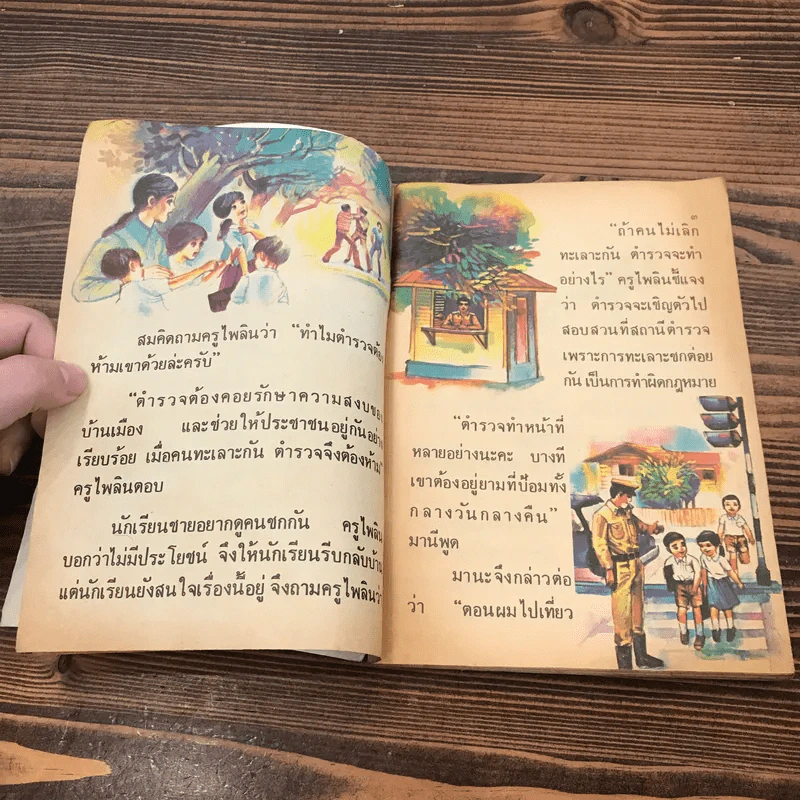 สมคิดถามครูไพลินว่า "ทำไมตำรวจต้อง
ห้ามเขาด้วยล่ะครับ"
"ตำรวจต้องคอยรักษาความสงบของ
บ้านเมือง และช่วยให้ประชาชนอยู่กันอย่าง
เรียบร้อย เมื่อคนทะเลาะกัน ตำรวจจึงต้องห้าม"
ครูไพลินตอบ
นักเรียนชายอยากดูคนชกกัน ครูไพลิน
บอกว่าไม่มีประโยชน์ จึงให้นักเรียนรีบกลับบ้าน
แต่นักเรียนยังสนใจเรื่องนี้อยู่ จึงถามครูไพลินว่า
๓
"ถ้าคนไม่เลิก
ทะเลาะกัน ตำรวจจะทำ
อย่างไร" ครูไพลินชี้แจง
ว่า ตำรวจจะเชิญตัวไป
สอบสวนที่สถานีตำรวจ
เพราะการทะเลาะชกต่อย
กัน เป็นการทำผิดกฎหมาย
"ตำรวจทำหน้าที่
หลายอย่างนะคะ บางที
เขาต้องอยู่ยามที่ป้อมทั้ง
กลางวันกลางคืน"
มานีพูด
มานะจึงกล่าวต่อ
ว่า "ตอนผมไปเที่ยว